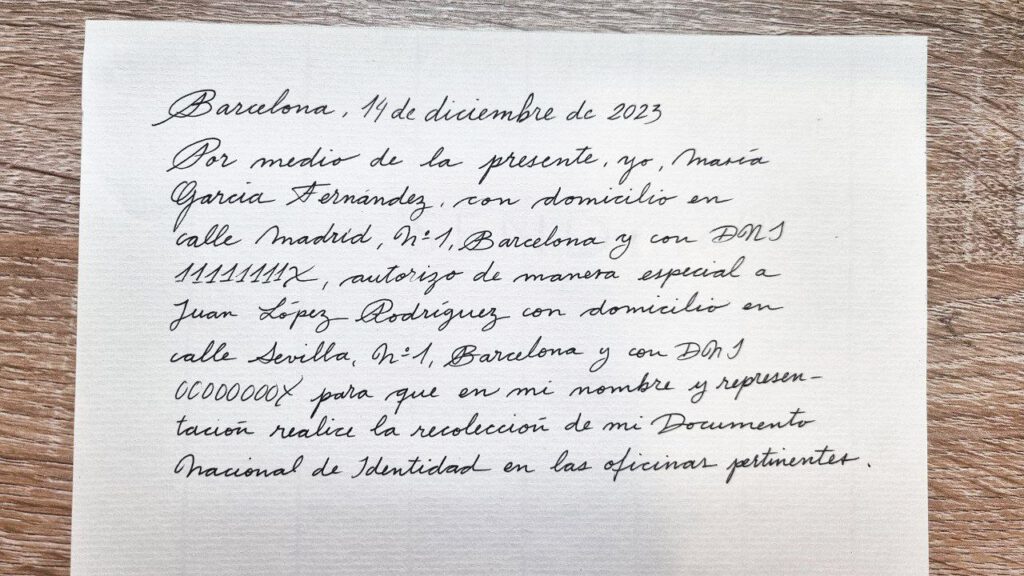 Barcelona, 14 de diciembre de 2023
Por medio de la presente, yo, María
García Fernández, con domicilio en
calle Madrid, Nº1, Barcelona y con DNI
11111111X, autorizo de manera especial a
Juan López Rodríguez con domicilio en
calle Sevilla, Nº1, Barcelona y con DNI
00000000X para que en mi nombre y represen-
tación realice la recolección de mi Documento
Nacional de Identidad en las oficinas pertinentes.